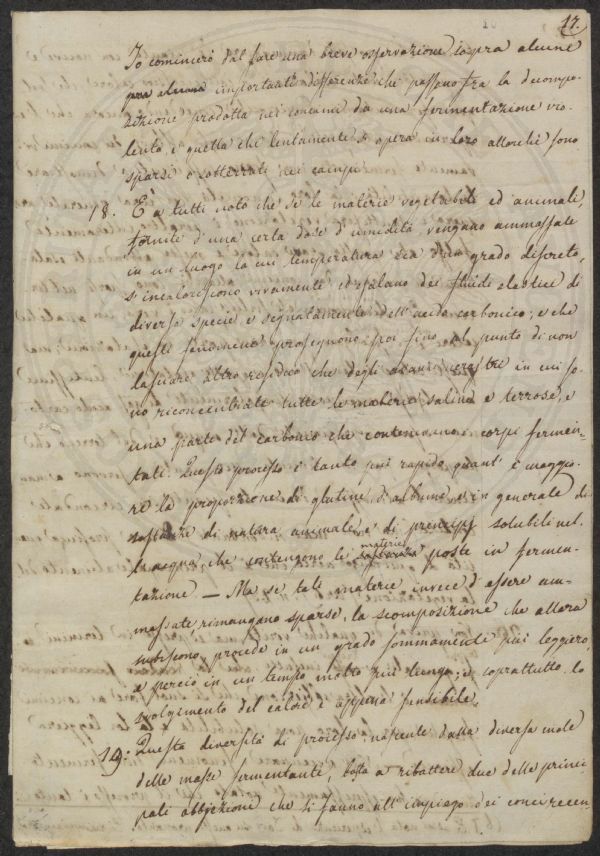 17.
Io comincierò dal fare una breve osservazione sopra alcune
pra alcune importanti differenze che passano fra la decompo-
sizione prodotta nei concimi da una fermentazione vio-
lenta, e quella che lentamente si opera in loro allorchè sono
sparsi o sotterrati nei campi.
18. È a tutti noto che se le materie vegetabili ed animali,
fornite d'una certa dose d'umidità, vengano ammassate
in un luogo la cui temperatura sia d'un grado discreto,
s'incaloriscono vivamente ed esalano dei fluidi elastici di
diversa specie e segnatamente dell'acido carbonico; e che
questi fenomeni proseguono poi fino al punto di non
lasciare altro residuo che degli avanzi terrestri in cui so-
no riconcentrate tutte le materie saline e terrose, e
una parte del carbonio che contenevano i corpi fermen-
tati. Questo processo è tanto più rapido quant'è maggio-
re la proporzione di glutine, d'albume, e in generale di
sostanze di natura animale, e di principj solubili nel-
l'acqua, che contengono le materie sostanze poste in fermen-
tazione. — Ma se tali materie invece d'essere am-
massate rimangano sparse, la scomposizione che allora
subiscono, procede in un grado sommamente più leggiero,
e perciò in un tempo molto più lungo; e soprattutto lo
svolgimento del calore è appena sensibile.
19. Questa diversità di processo, nascente dalla diversa mole
delle masse fermentanti, basta a ribattere due delle princi-
pali obbjezioni che si fanno all'impiego dei concj recen